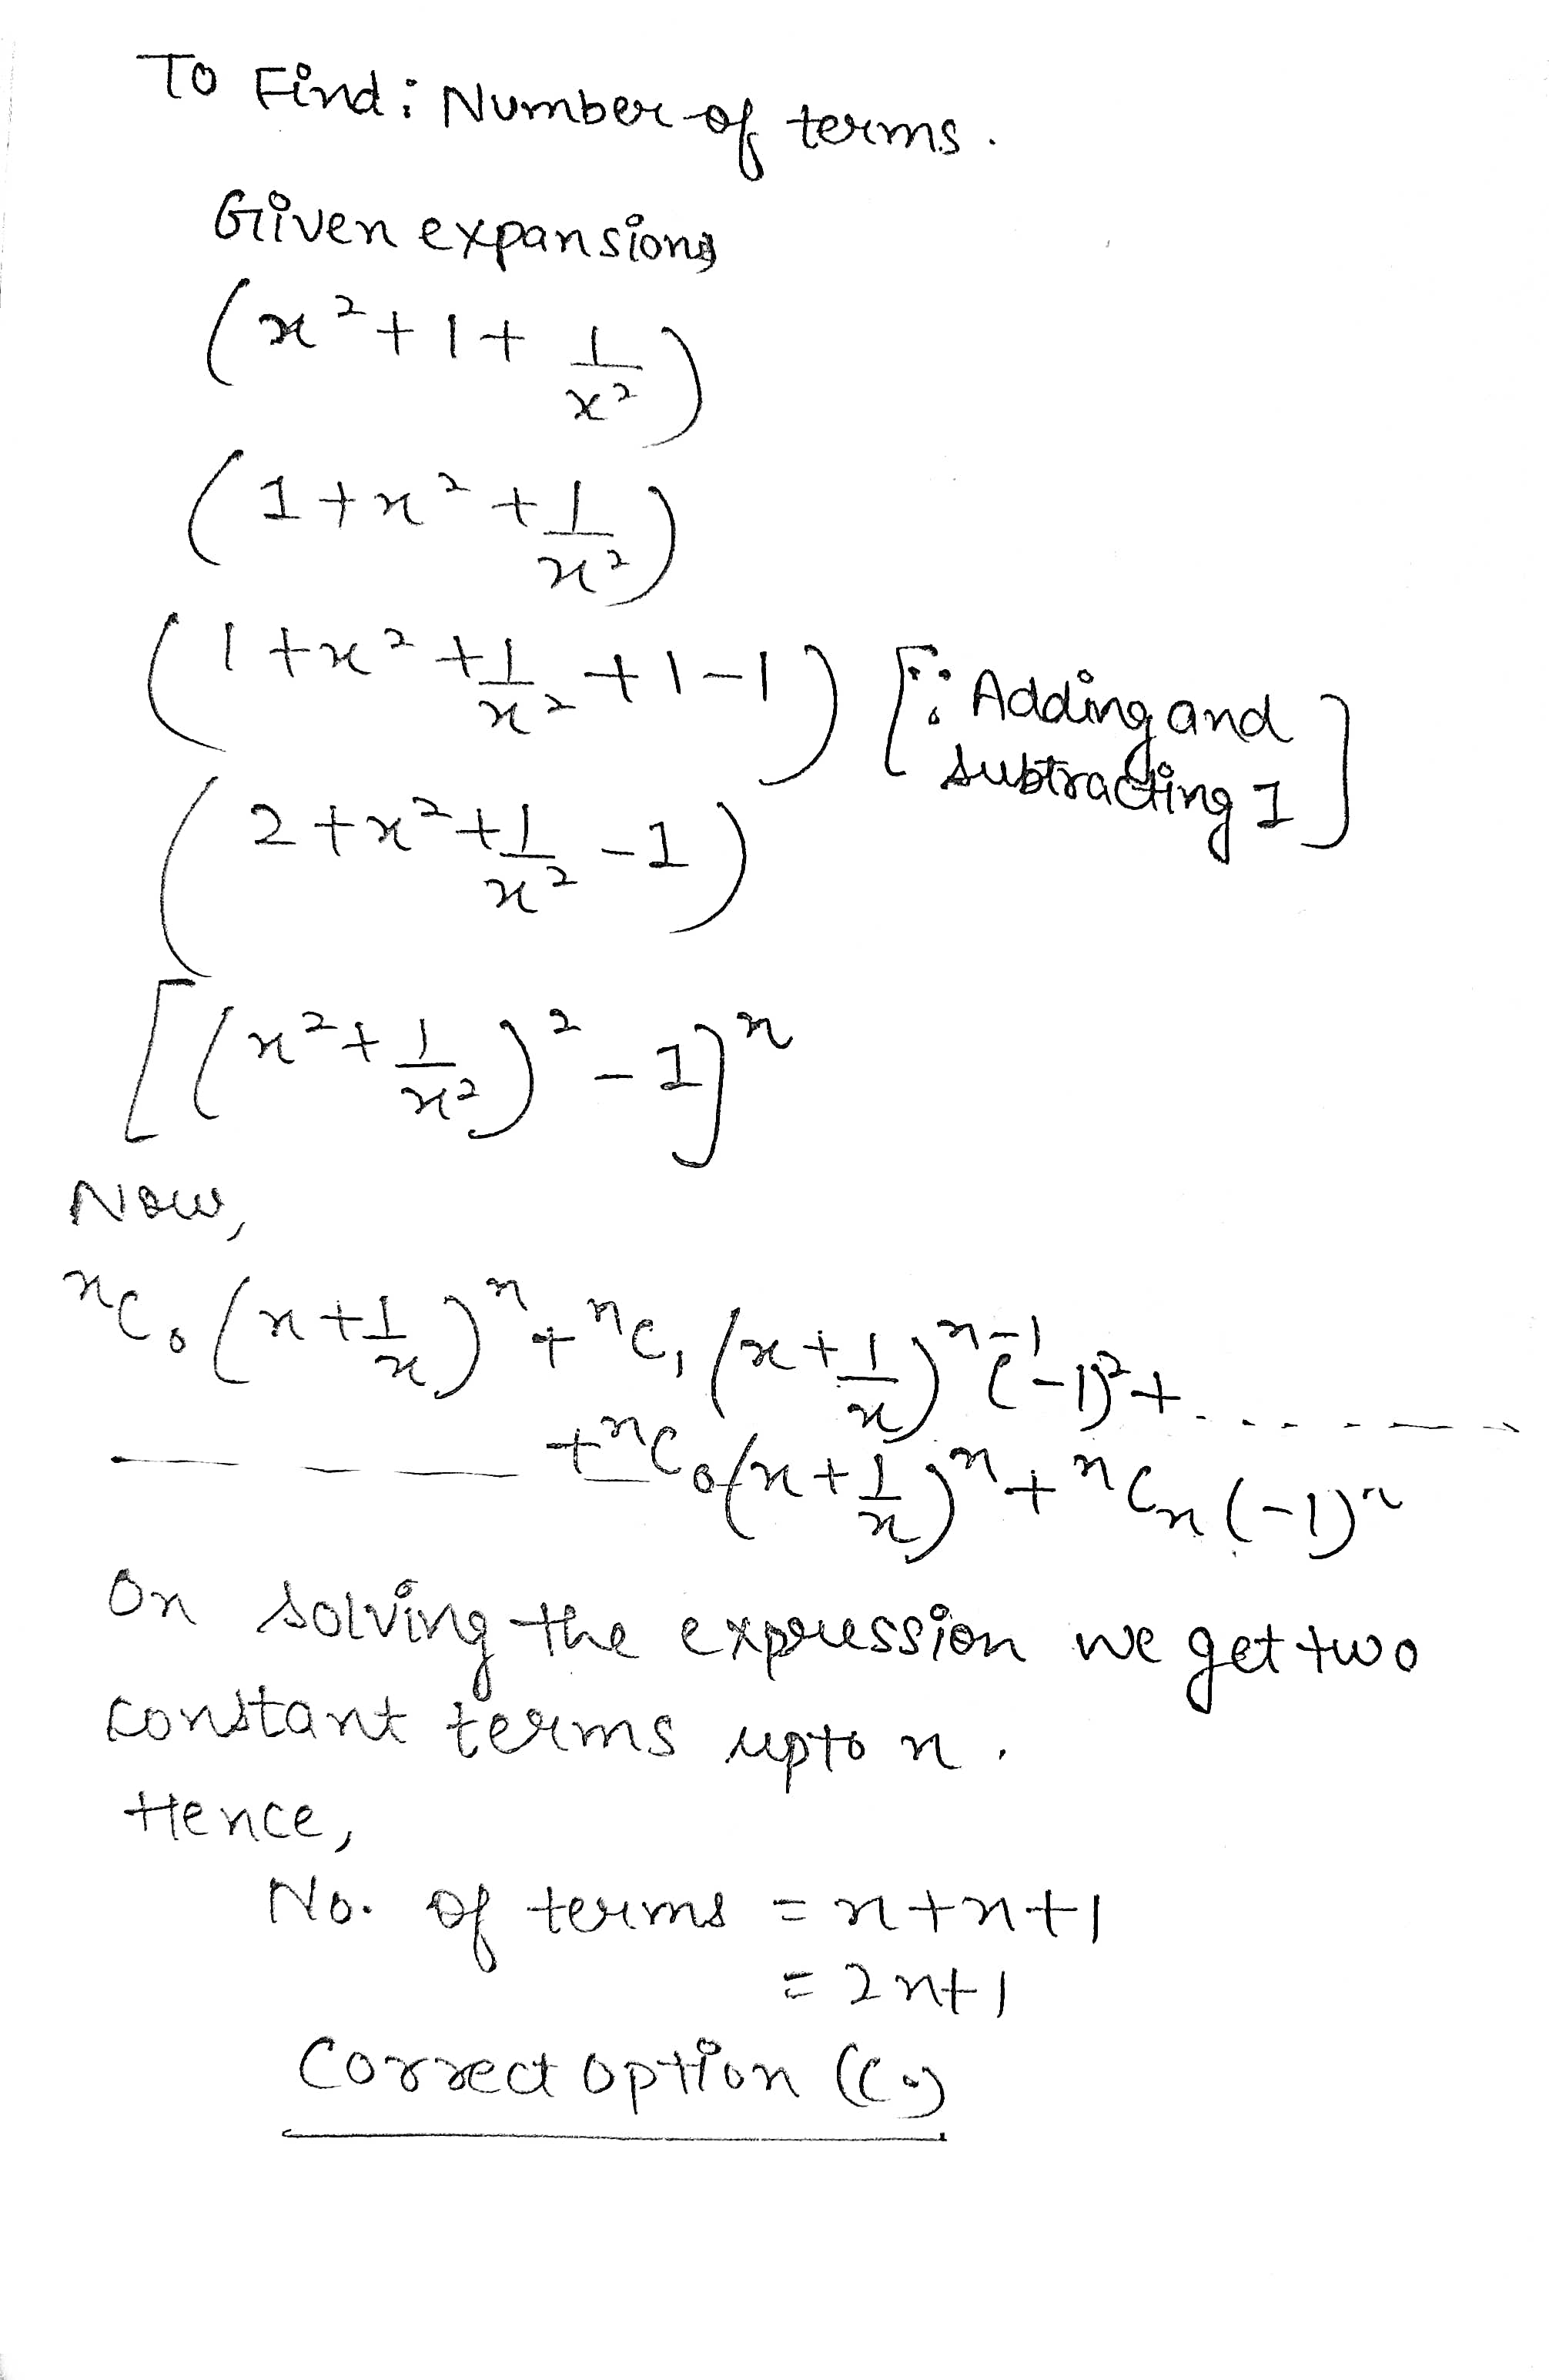 To Find: Number of terms.
Given expansions
(x² + 1 + 1/x²)
(1 + x² + 1/x²)
(1 + x² + 1/x² + 1 - 1) [∵ Adding and
subtracting 1]
(2 + x² + 1/x² - 1)
[(x² + 1/x²)² - 1]ⁿ
Now,
ⁿC₀ (x + 1/x)ⁿ + ⁿC₁ (x + 1/x)ⁿ⁻¹ (-1)² + . . . . - - - -
- - - - + ⁿC₀ (x + 1/x)ⁿ + ⁿCₙ (-1)ⁿ
On solving the expression we get two
constant terms upto n.
Hence,
No. of terms = n + n + 1
= 2n + 1
Correct option (C.)